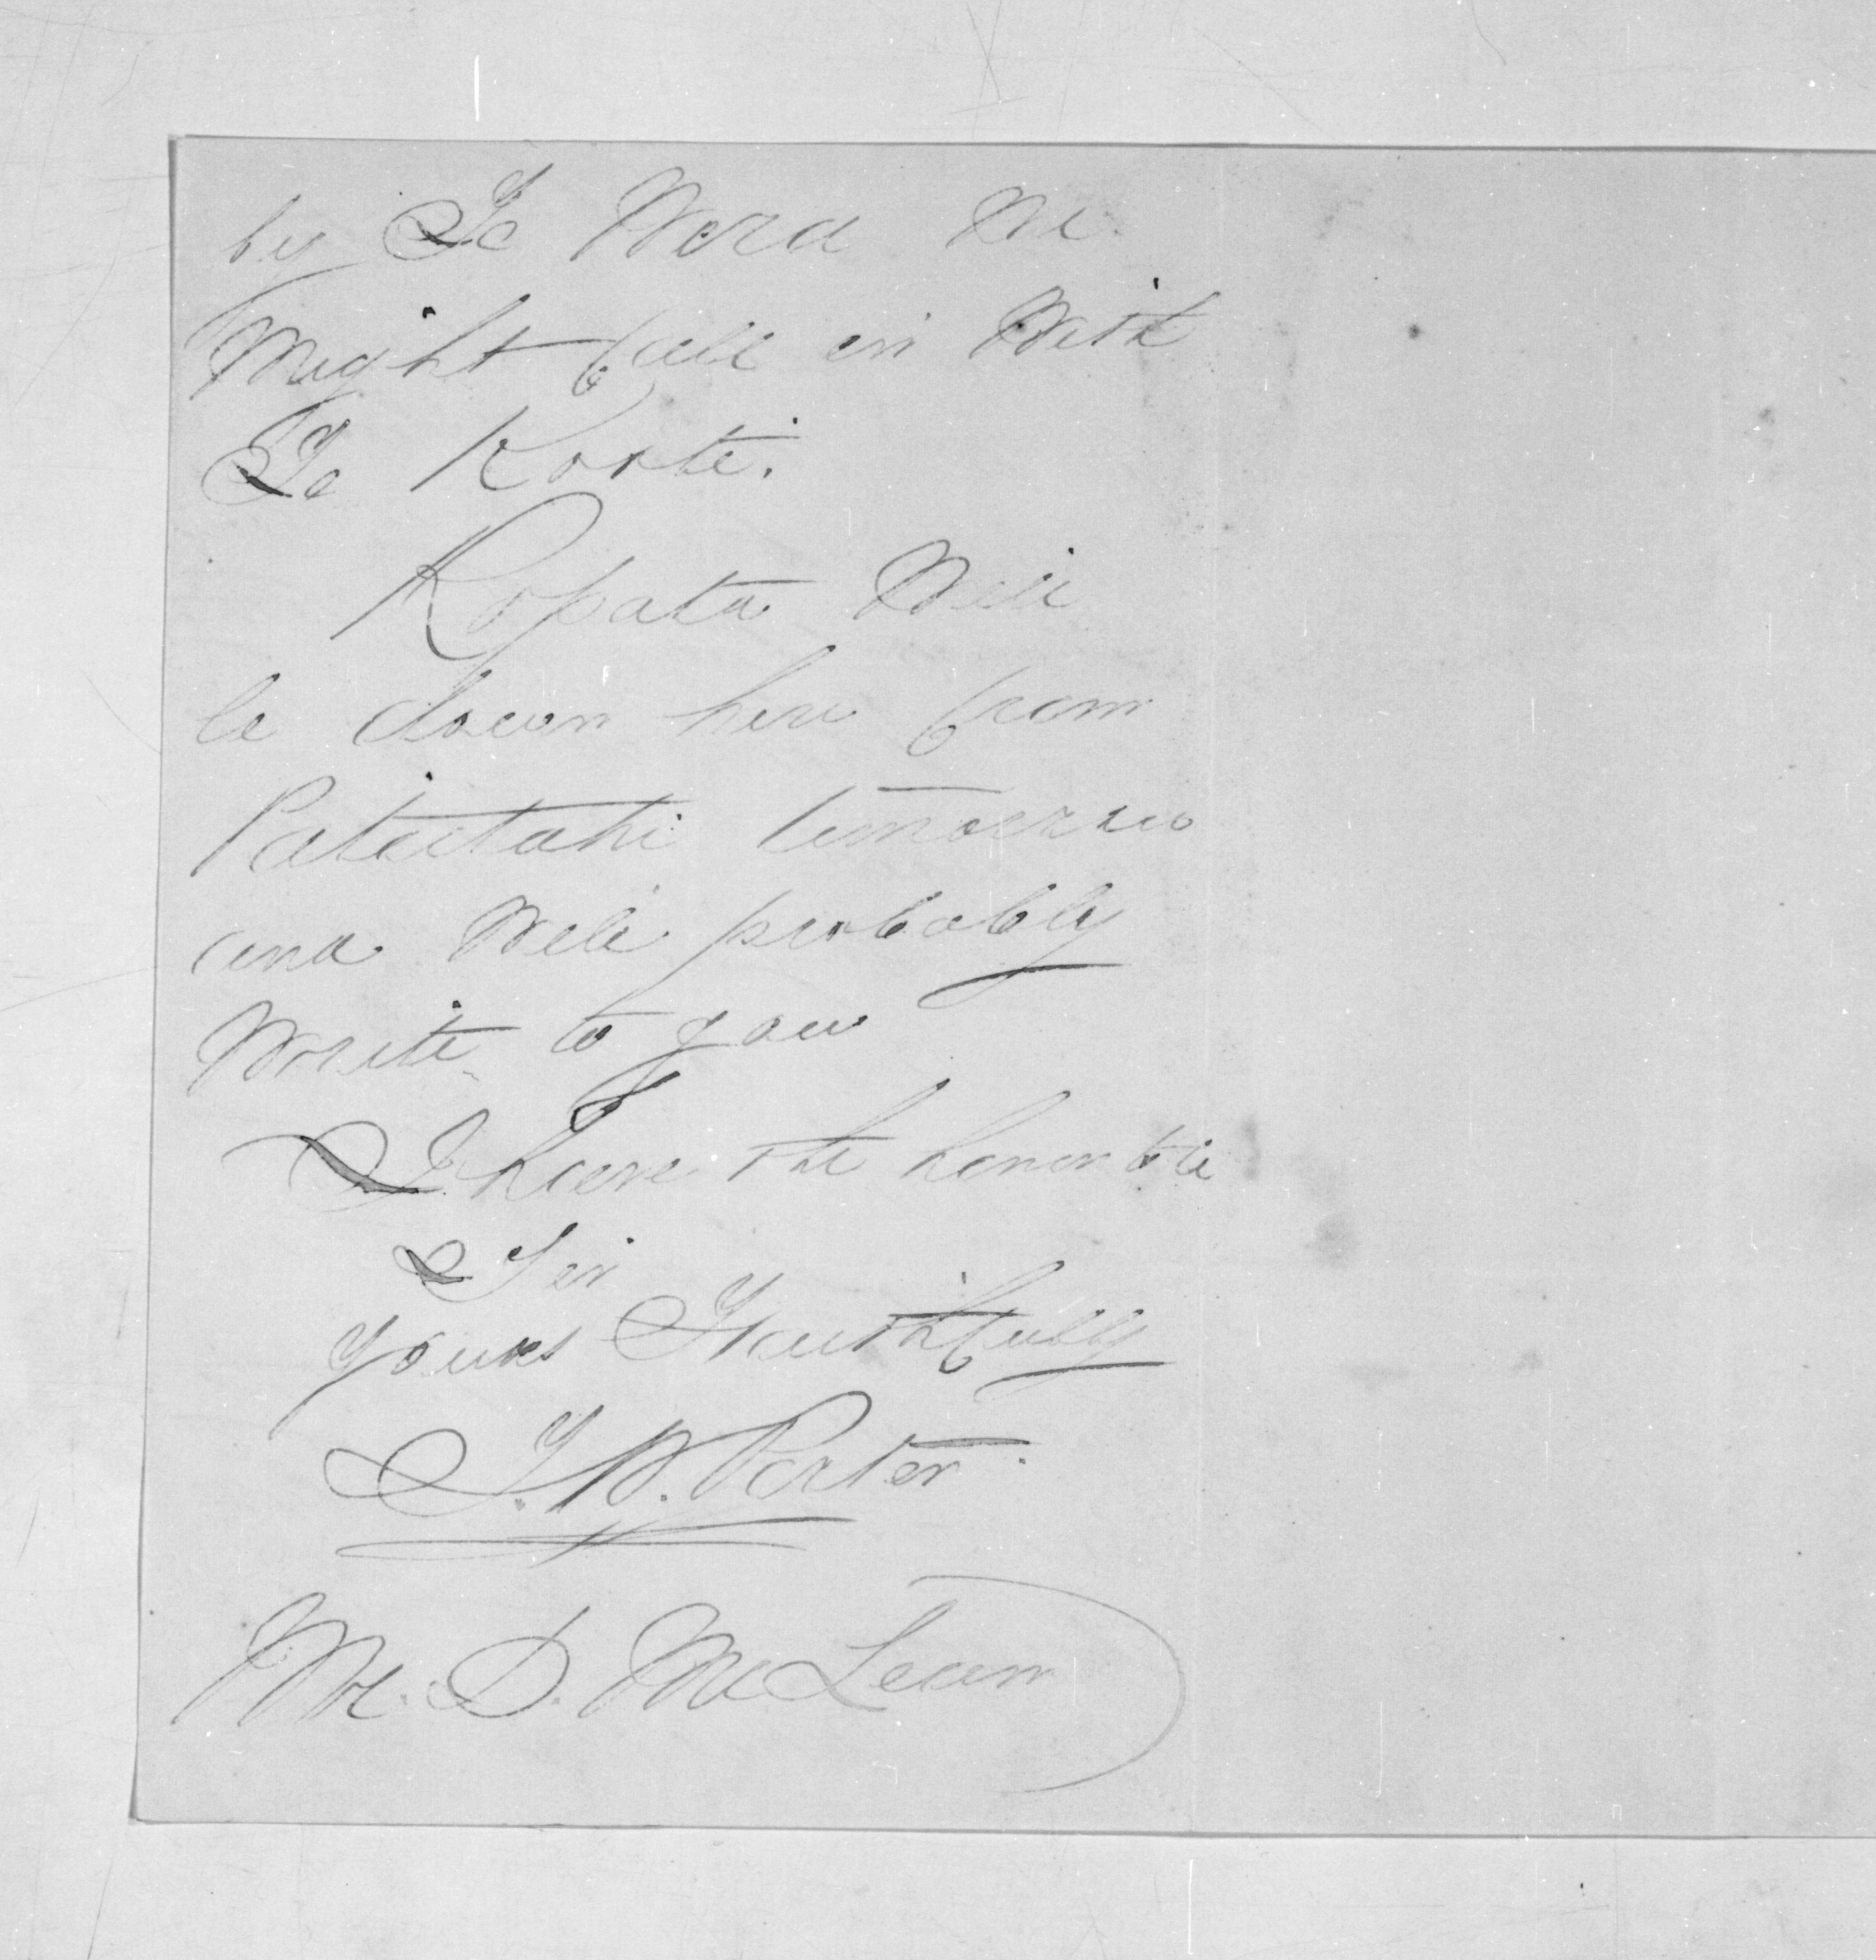 by Te Wera We
Might fall in With
Te Kooti.
Ropata Will
be down here from
Patutahi tomorrow
and Will probably
Write to you
I have the honor to be
Sir
Yours Faithfully
T. W. Porter.
Mr. D. McLean